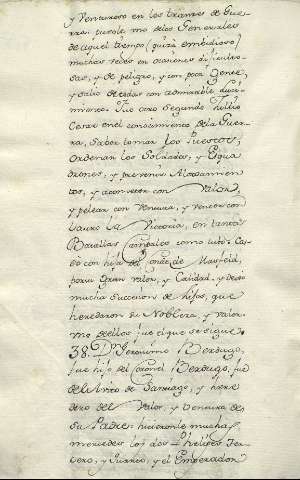 y Venturoso en los trances de Gue
rra: pusole uno de los Generales
de aquel tiempo (quiza embidioso)
muchas vezes en ocasiones dificulto
sas, y de peligro, y con poca Gente,
y salio de todas con admirable luci
miento. Fue otro segundo Julio
Cesar en el conocimiento de la Gue
rra, saber tomar los Puestos,
Ordenar los Soldados, y Esqua
drones, y prevenir Alojamien
tos, y acometer con Valor,
y pelear con Ventura, y vencer con
Lauro la Victoria, en tantas
Batallas Campales como tubo: Ca
só con hija del Conde de Mansfeld,
por su Gran valor, y Calidad, y dexo
mucha Succession de hijos, que
heredaron su Nobleza, y valor.
uno de ellos fue el que se sigue
38. Dn. Geronimo Berdugo,
fue hijo del Coronel Berdugo, fue
del Avito de Santiago, y here
dero del Valor, y Ventura de
su Padre: hicieronle muchas
mercedes los dos Phelipes Ter
cero, y Quarto, y el Emperador